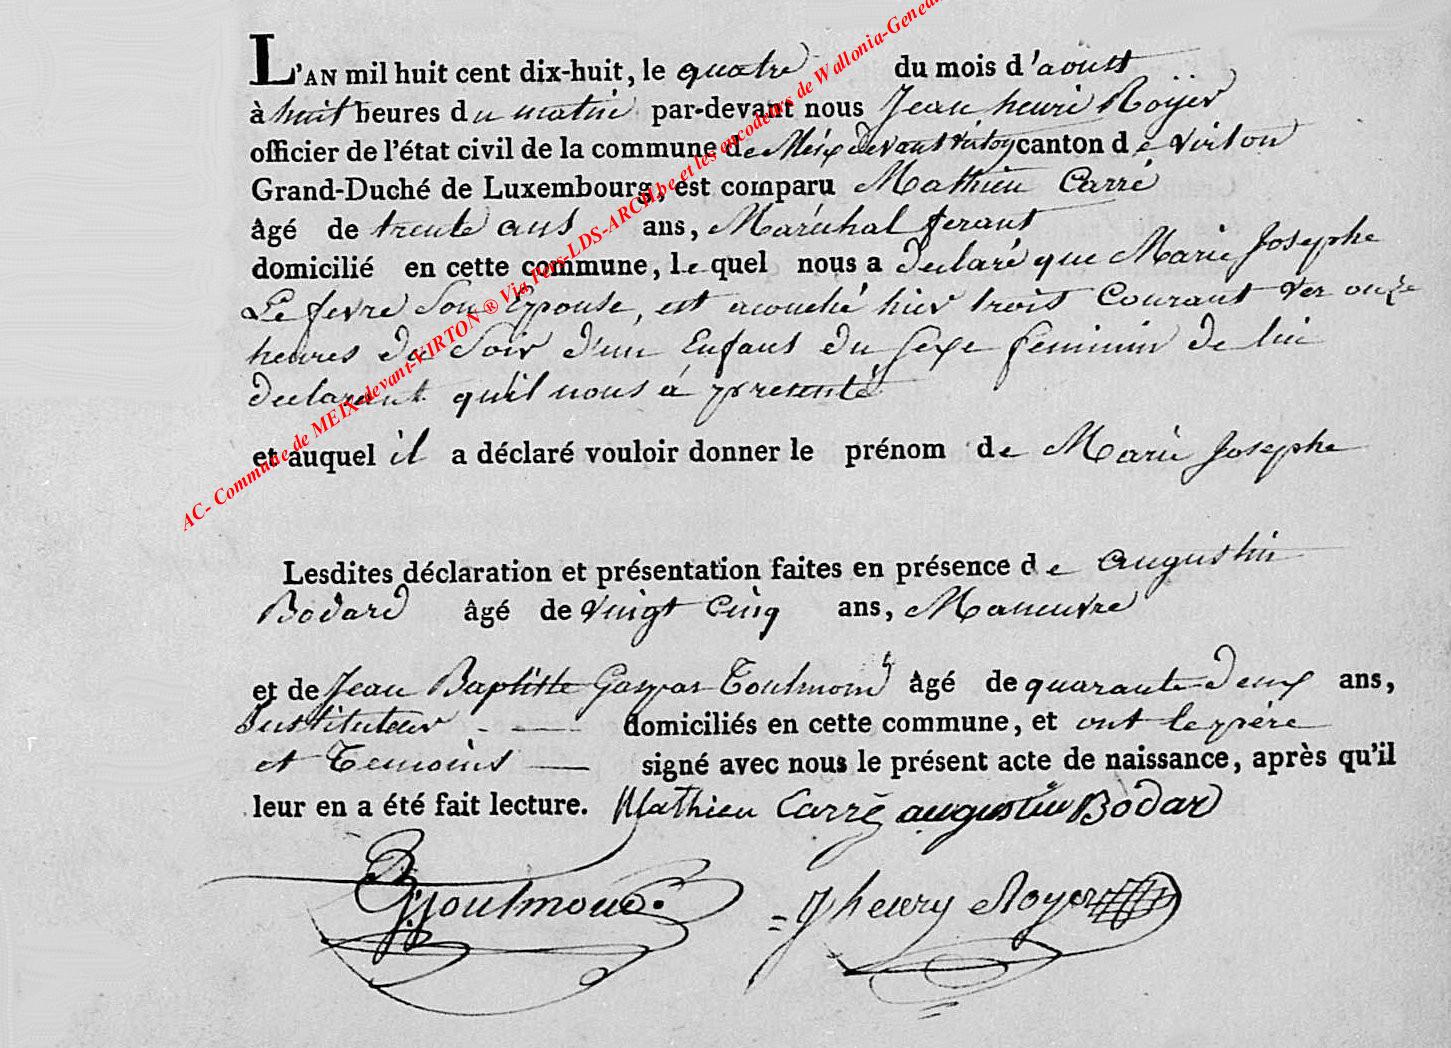 L'AN mil huit cent dix-huit, le quatre du mois d'aoust
à huit heures du matin par-devant nous Jean henri Royer
officier de l'état civil de la commune de Meix devant virton canton de virton
Grand-Duché de Luxembourg, est comparu Mathieu Carré
âgé de trente ans ans, Maréchal ferant
domicilié en cette commune, lequel nous a declaré que Marie Josephe
Le fevre Son Epouse, est acouché hier trois Courant ver onze
heures du Soir d'un Enfant du sexe feminin de lui
declarant qu'il nous à presenté
et auquel il a déclaré vouloir donner le prénom de Marie Josephe
Lesdites déclaration et présentation faites en présence de augustin
Bodard âgé de vingt Cinq ans, Maneuvre
et de Jean Baptiste Gaspar Toulmond âgé de quarante deux ans,
Instituteur - — domiciliés en cette commune, et ont le père
et Temoins — signé avec nous le présent acte de naissance, après qu'il
leur en a été fait lecture. Mathieu Carré augustin Bodar
Toulmond. = J henry Royer
AC- Commune de MEIX-devant-VIRTON ® Via Pers-LDS-ARCH.be et les encodeurs de Wallonia-Geneal